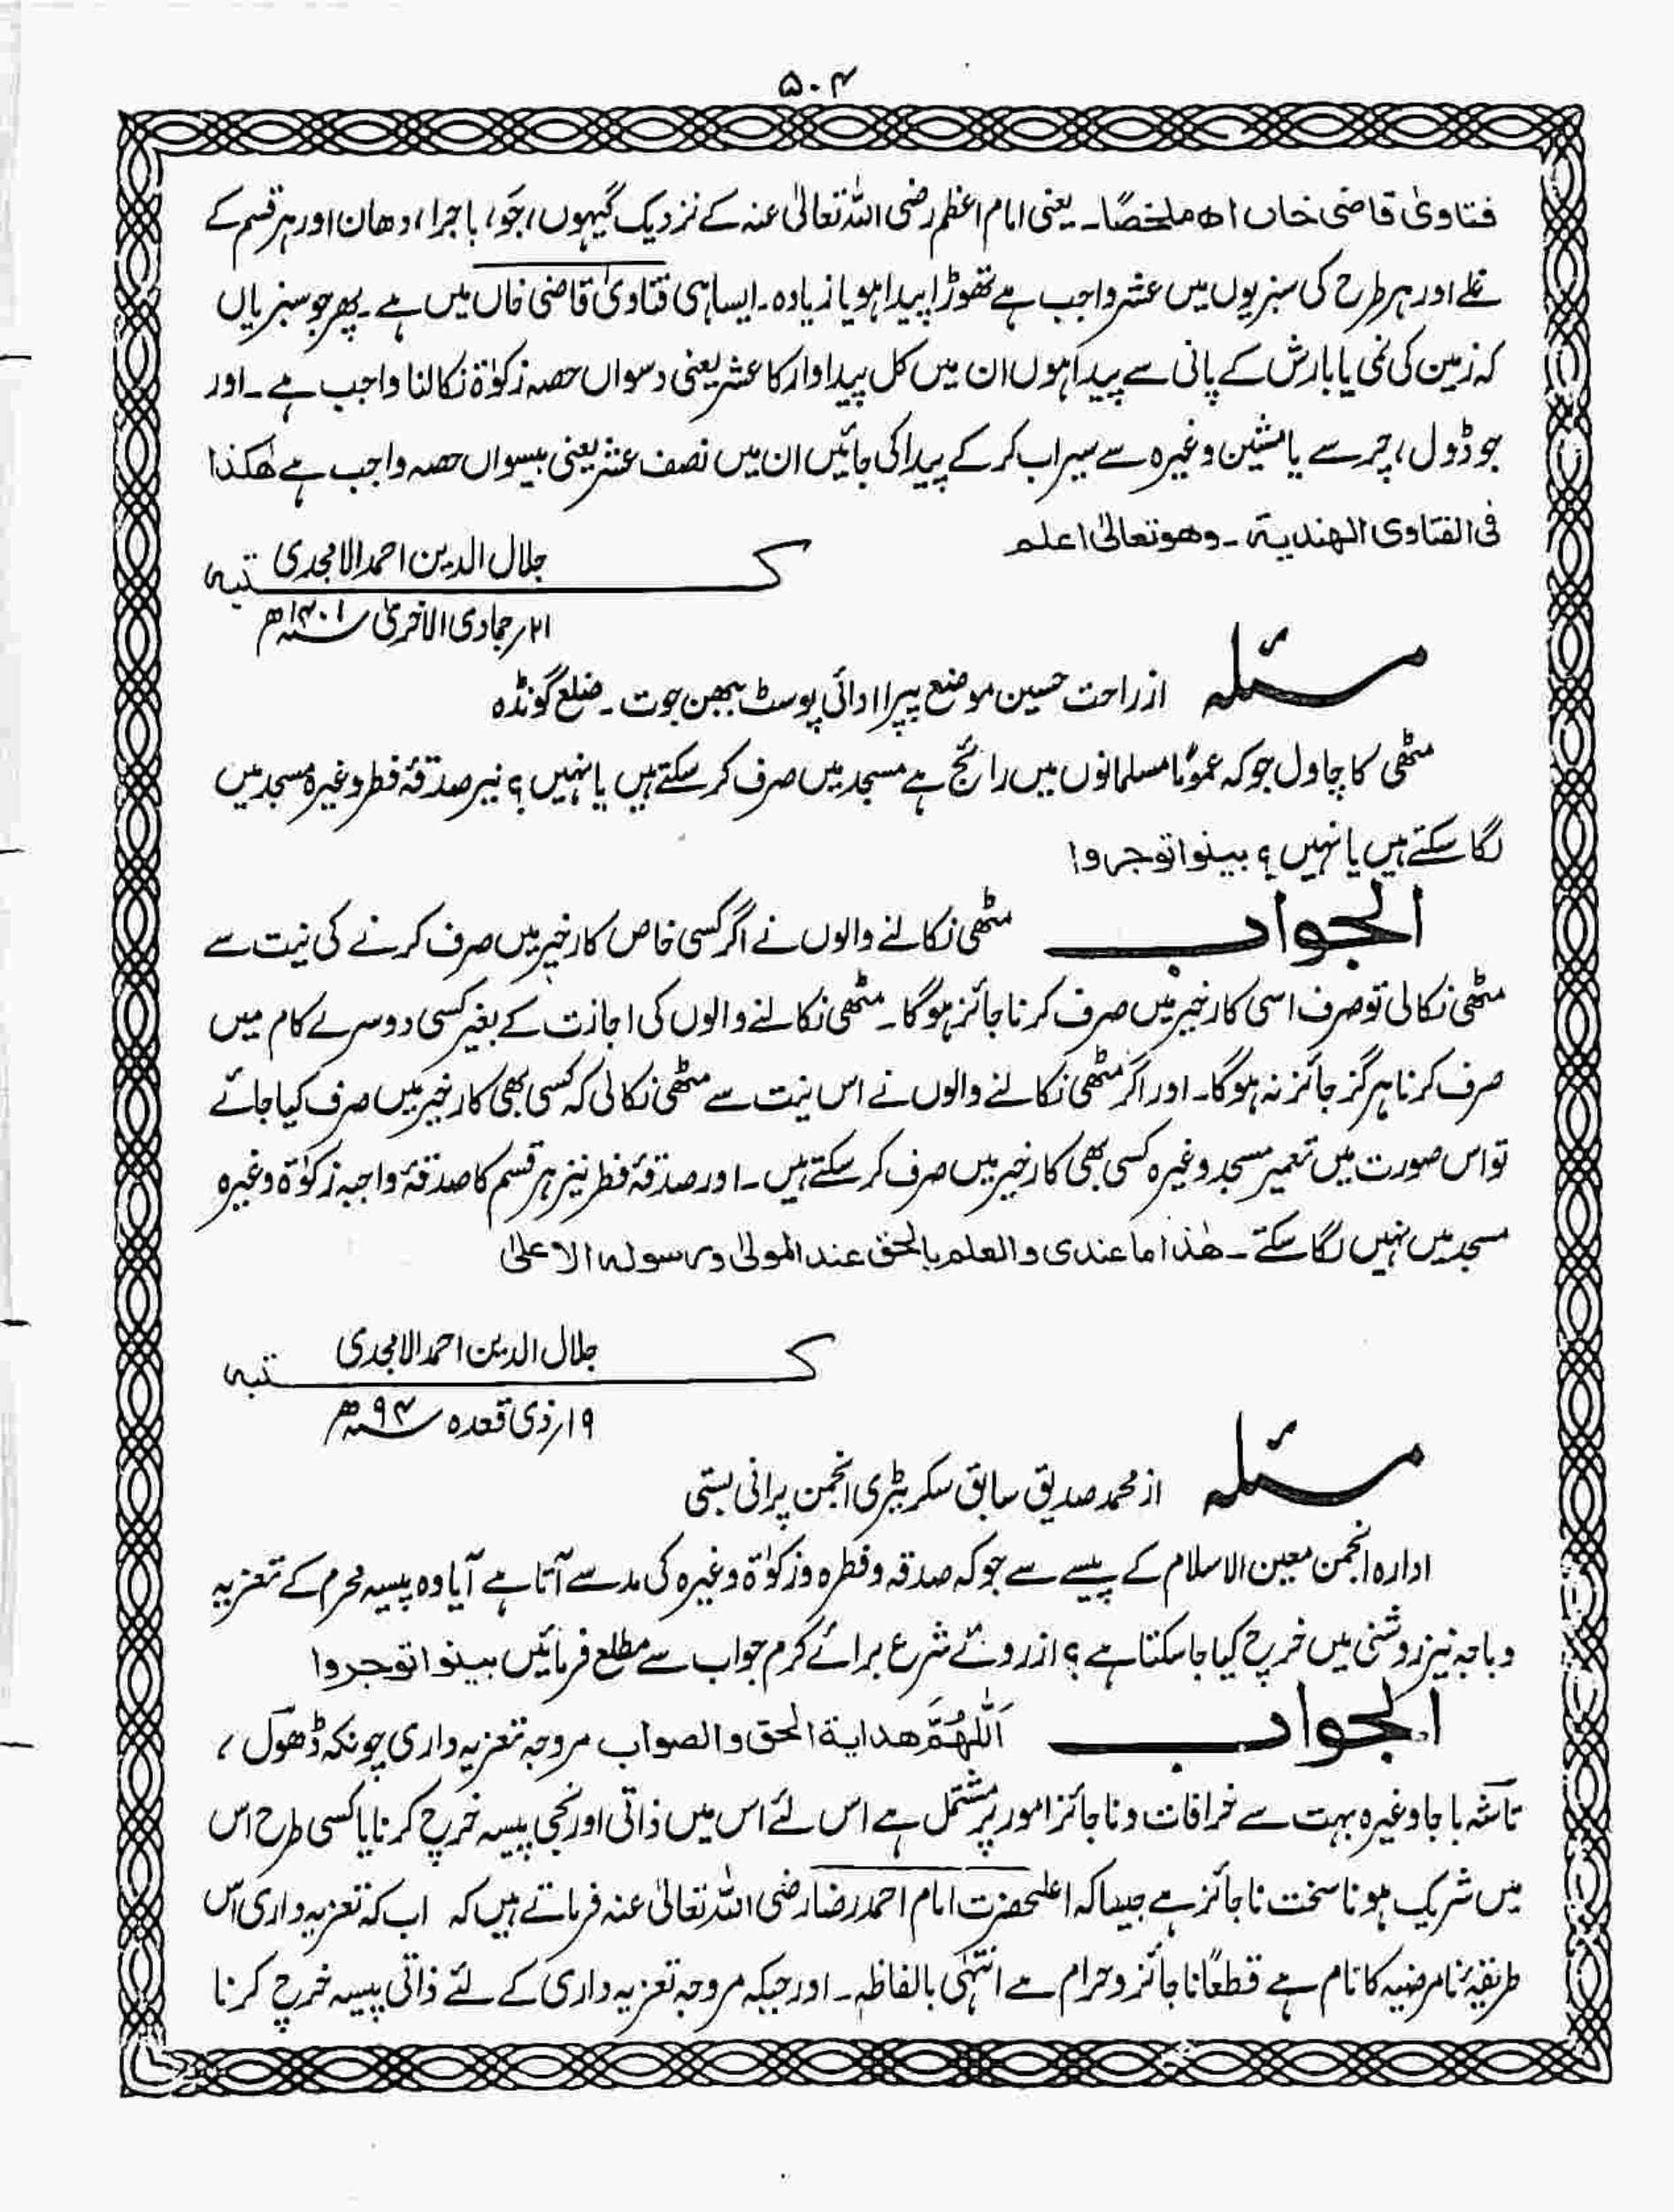 ۵۰۴
فتاویٰ قاضی خاں اھ ملخصًا۔ یعنی امام اعظم رضی اللہ تعالیٰ عنہ کے نزدیک گیہوں، جَو، باجرا، دھان اور ہر قسم کے
غلے اور ہر طرح کی سبزیوں میں عشر واجب ہے تھوڑا پیدا ہو یا زیادہ۔ ایسا ہی فتاویٰ قاضی خاں میں ہے۔ پھر جو سبزیاں
کہ زمین کی نمی یا بارش کے پانی سے پیدا ہوں ان میں کل پیداوار کا عشر یعنی دسواں حصہ زکوٰۃ نکالنا واجب ہے۔ اور
جو ڈول، چرسے یا مشین وغیرہ سے سیراب کرکے پیدا کی جائیں ان میں نصف عشر یعنی بیسواں حصہ واجب ہے ھٰکذا
فی الفتاوی الہندیۃ۔ وھو تعالیٰ اعلم
کتبہ جلال الدین احمد الامجدی
۲۱؍جمادی الاخریٰ ۱۴۰۱ھ
مسئلہ از راحت حسین موضع پپرا ادائی پوسٹ بھجن جوت۔ ضلع گونڈہ
مٹھی کا چاول جو کہ عمومًا مسلمانوں میں رائج ہے مسجد میں صرف کر سکتے ہیں یا نہیں؟ نیز صدقۂ فطر وغیرہ مسجد میں
لگا سکتے ہیں یا نہیں؟ بینوا توجروا
الجواب مٹھی نکالنے والوں نے اگر کسی خاص کار خیر میں صرف کرنے کی نیت سے
مٹھی نکالی تو صرف اسی کار خیر میں صرف کرنا جائز ہوگا۔ مٹھی نکالنے والوں کی اجازت کے بغیر کسی دوسرے کام میں
صرف کرنا ہرگز جائز نہ ہوگا۔ اور اگر مٹھی نکالنے والوں نے اس نیت سے مٹھی نکالی کہ کسی بھی کار خیر میں صرف کیا جائے
تو اس صورت میں تعمیر مسجد وغیرہ کسی بھی کار خیر میں صرف کر سکتے ہیں۔ اور صدقۂ فطر نیز ہر قسم کا صدقۂ واجبہ زکوٰۃ وغیرہ
مسجد میں نہیں لگا سکتے۔ ھٰذا ما عندی والعلم بالحق عند المولیٰ ورسولہ الاعلیٰ
کتبہ جلال الدین احمد الامجدی
۱۹؍ذی قعدہ ۹۴ھ
مسئلہ از محمد صدیق سابق سکریٹری انجمن پرانی بستی
ادارہ انجمن معین الاسلام کے پیسے سے جو کہ صدقہ و فطرہ و زکوٰۃ وغیرہ کی مد سے آتا ہے آیا وہ پیسہ محرم کے تعزیہ
و باجہ نیز روشنی میں خرچ کیا جا سکتا ہے؟ از روئے شرع برائے کرم جواب سے مطلع فرمائیں بینوا توجروا
الجواب اَللّٰھُمَّ ھدایۃ الحق والصواب مروجہ تعزیہ داری چونکہ ڈھول،
تاشہ باجا وغیرہ بہت سے خرافات و ناجائز امور پر مشتمل ہے اس لئے اس میں ذاتی اور نجی پیسہ خرچ کرنا یا کسی طرح اس
میں شریک ہونا سخت ناجائز ہے جیسا کہ اعلیحضرت امام احمد رضا رضی اللہ تعالیٰ عنہ فرماتے ہیں کہ اب کہ تعزیہ داری اس
طریقۂ نامرضیہ کا نام ہے قطعًا ناجائز و حرام ہے انتہٰی بالفاظہ۔ اور جبکہ مروجہ تعزیہ داری کے لئے ذاتی پیسہ خرچ کرنا